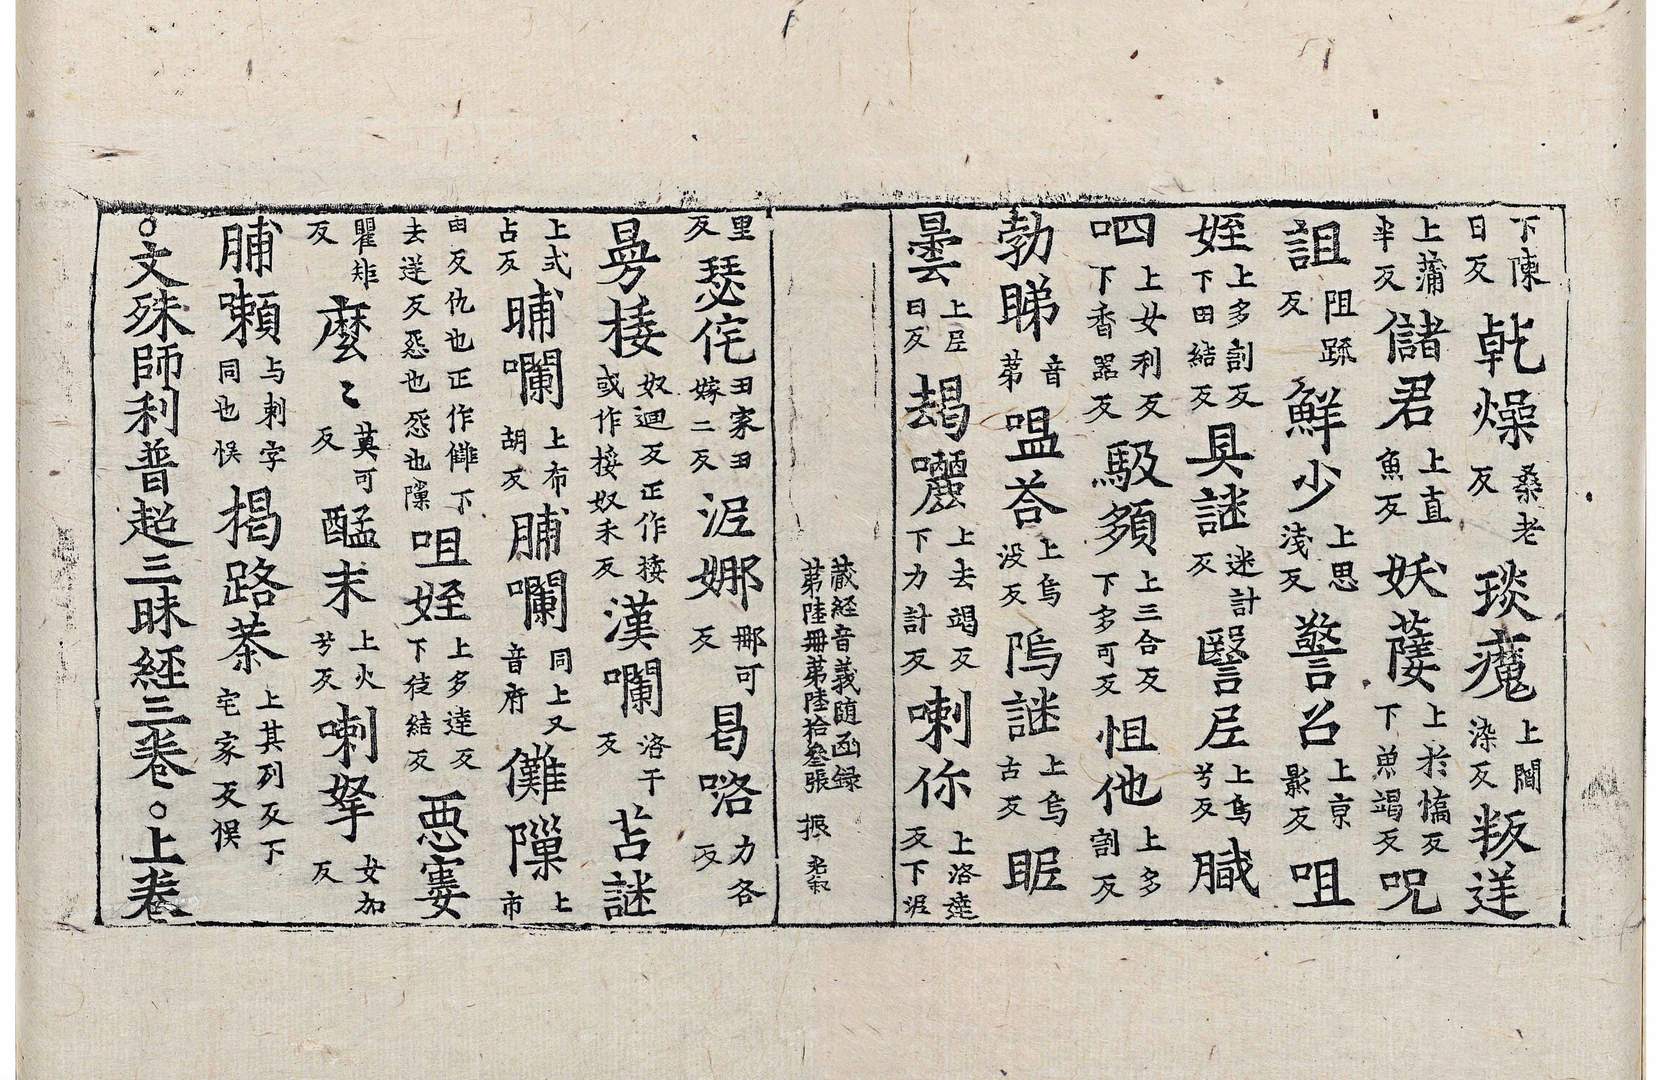 下陳日反乾燥桑老反琰魔上閻染反叛逆
上蒲半反儲君上直魚反妖㜸上於憍反下魚竭反呪
詛阻䟽反鮮少上思淺反警召上京影反咀
姪上多割反下田結反具謎迷計反瞖𡰱上烏兮反膱
呬上女利反下香器反駊頞上三合反下多可反怛他上多割反
勃睇音苐嗢荅上烏没反隖謎上烏古反眤
曇上𡰱日反朅囉上去竭反下力計反喇你上洛達反下泥
藏経音義随函録
苐陸冊苐陸拾叄張 振
里反瑟侘丑家丑嫁二反泥娜那可反曷𠹗力各反
㬅㨗奴迴反正作捼或作挼奴禾反漢囒洛干反苫謎
上式占反晡囒上布胡反脯囒同上又音府儺隟上市
由反仇也正作讎下去逆反惡也怨也隟咀姪上多達反下徒結反惡窶
瞿矩反麼〻莫可反醯末上火兮反喇拏女加反
脯囇与剌字同也悮揭路荼上其列反下宅家反悮
○文殊師利普超三昧経三卷○上卷